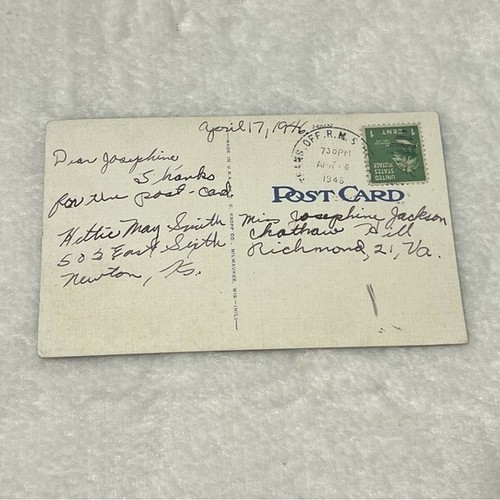 April 17, 1946
Dear Josephine
Thanks
for the post-card
Hettie May Smith
505 East Sixth
Newton, Ks.
MADE IN U.S.A.
E. C. KROPP CO., MILWAUKEE, WIS.
OFF. R.M.S.
7 30 PM
1946
UNITED
STATES
POSTAGE
1 CENT 1
POST CARD
Miss Josephine Jackson
Chatham Hill
Richmond, 21, Va.